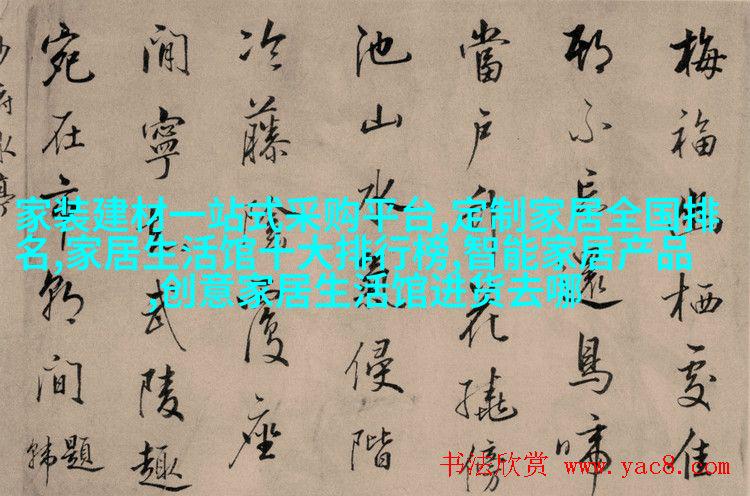 梅福幽栖處佳
期不忘還鳥啼
當戶竹花繞傍
池山水氣侵階
冷藤陰覆座
閒寧知武陵趣
宛在市朝間
題韓
少府水亭
家装建材一站式采购平台,定制家居全国排
名,家居生活馆十大排行榜,智能家居产品
,创意家居生活馆进货去哪
书法欣赏 www.yac8.com